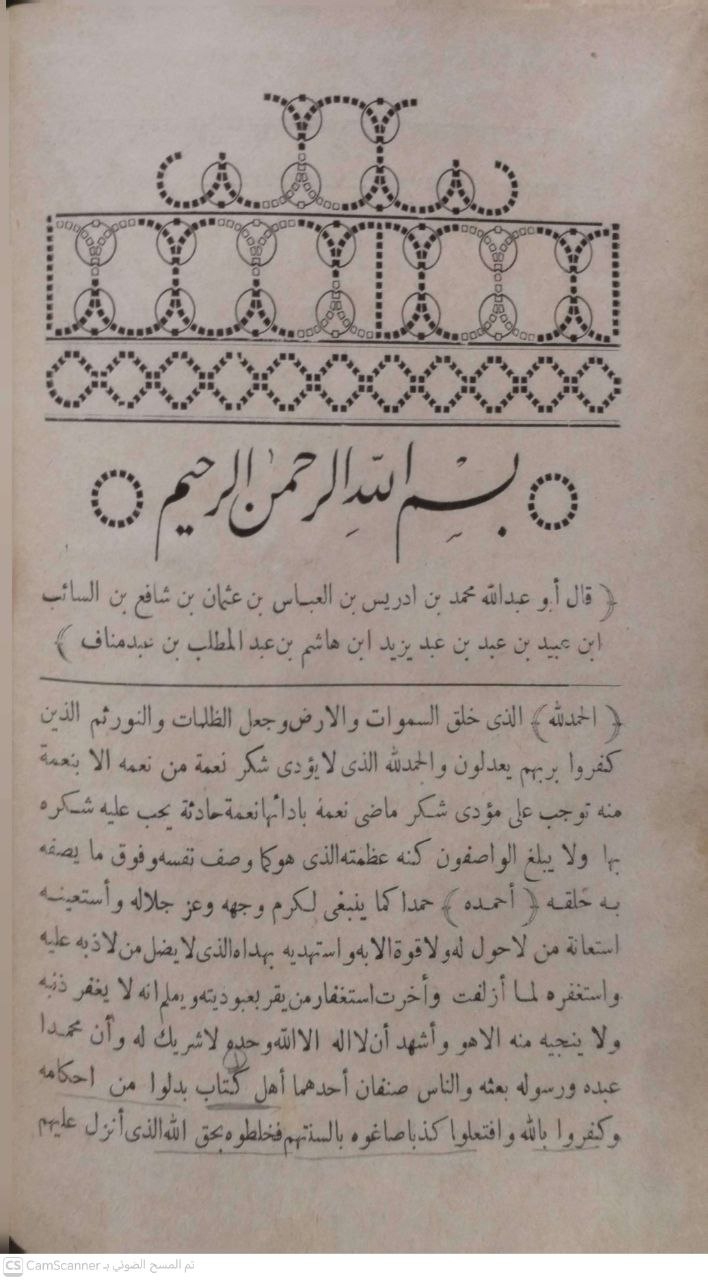 بسم الله الرحمن الرحيم
﴿ قال أبو عبدالله محمد بن ادريس بن العباس بن عثمان بن شافع بن السائب
ابن عبيد بن عبد بن عبد يزيد ابن هاشم بن عبد المطلب بن عبدمناف ﴾
﴿ الحمدلله ﴾ الذى خلق السموات والارض وجعل الظلمات والنور ثم الذين
كفروا بربهم يعدلون والحمدلله الذى لا يؤدى شكر نعمة من نعمه الا بنعمة
منه توجب على مؤدى شكر ماضى نعمه بادائها نعمة حادثة يجب عليه شكره
بها ولا يبلغ الواصفون كنه عظمته الذى هو كما وصف نفسه وفوق ما يصفه
به خلقه ﴿ أحمده ﴾ حمدا كما ينبغى لكرم وجهه وعز جلاله وأستعينه
استعانة من لا حول له ولا قوة الا به واستهديه بهداه الذى لا يضل من لاذ به عليه
واستغفره لما أزلفت وأخرت استغفار من يقر بعبوديته ويعلم انه لا يغفر ذنبه
ولا ينجيه منه الا هو وأشهد أن لا اله الا الله وحده لا شريك له وأن محمدا
عبده ورسوله بعثه والناس صنفان أحدهما أهل كتاب بدلوا من احكامه
وكفروا بالله وافتعلوا كذبا صاغوه بالسنتهم فخلطوه بحق الله الذى أنزل عليهم
CS CamScanner تم المسح الضوئي بـ